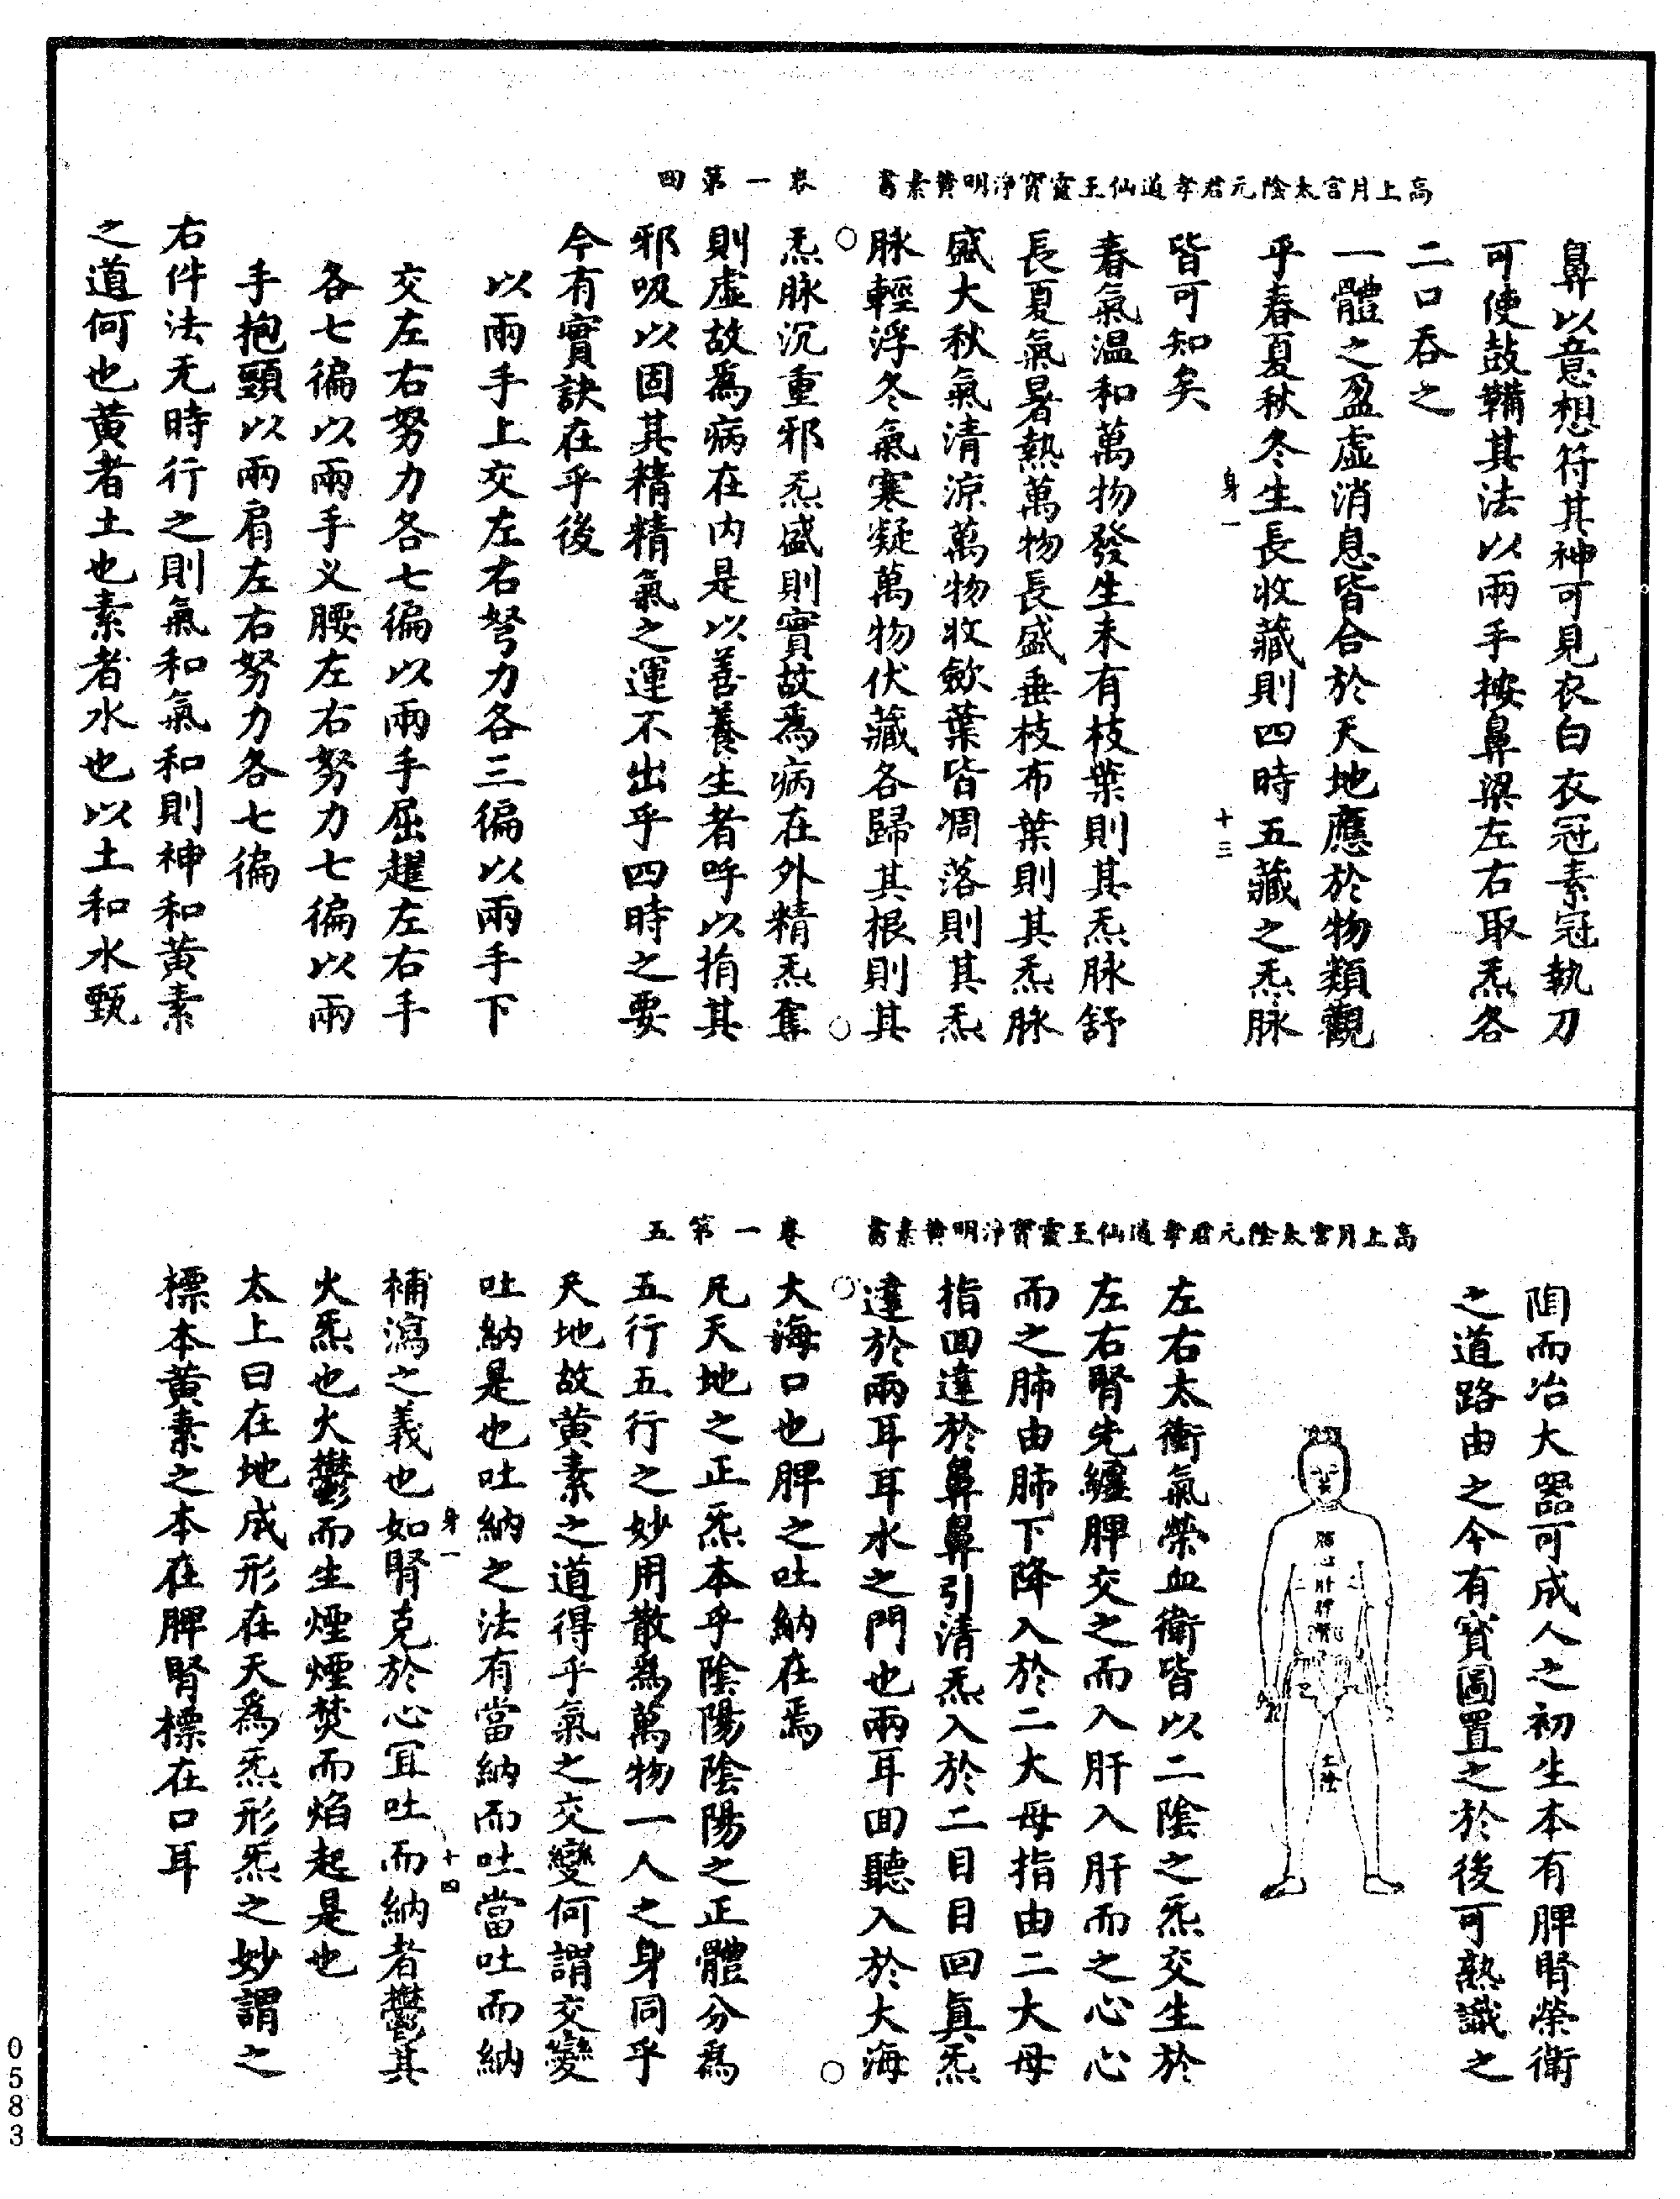 鼻以意想符其神可見衣白衣冠素冠執刀
可使鼓鞴其法以兩手按鼻梁左右取炁各
二口吞之
一體之盈虛消息皆合於天地應於物類觀
乎春夏秋冬生長收藏則四時五藏之炁脉
身一
十三
皆可知矣
春氣温和萬物發生未有枝葉則其炁脉舒
長夏氣暑熱萬物長盛垂枝布葉則其炁脉
盛大秋氣清涼萬物收斂葉皆凋落則其炁
脉輕浮冬氣寒凝萬物伏藏各歸其根則其
高上月宮太陰元君孝道仙王靈寶淨明黃素書 卷一第四
炁脉沉重邪炁盛則實故爲病在外精炁奪
則虛故爲病在内是以善養生者呼以捐其
邪吸以固其精精氣之運不出乎四時之要
今有實訣在乎後
以兩手上交左右弩力各三徧以兩手下
交左右努力各七徧以兩手屈趯左右手
各七徧以兩手义腰左右努力七徧以兩
手抱頸以兩肩左右努力各七徧
右件法无時行之則氣和氣和則神和黃素
之道何也黃者土也素者水也以土和水甄
陶而冶大器可成人之初生本有脾腎榮衛
之道路由之今有寳圖置之於後可熟識之
肺心肝脾腎
土陰
左右太衝氣榮血衛皆以二陰之炁交生於
左右腎先纏脾交之而入肝入肝而之心心
而之肺由肺下降入於二大母指由二大母
指回達於鼻鼻引清炁入於二目目回真炁
達於兩耳耳水之門也兩耳回聽入於大海
高上月宮太陰元君孝道仙王靈寶淨明黃素書 卷一第五
大海口也脾之吐納在焉
凡天地之正炁本乎陰陽陰陽之正體分爲
五行五行之妙用散爲萬物一人之身同乎
天地故黃素之道得乎氣之交變何謂交變
吐納是也吐納之法有當納而吐當吐而納
身一
十四
補瀉之義也如腎克於心冝吐而納者鬱其
火炁也火鬱而生煙煙焚而焰起是也
太上曰在地成形在天爲炁形炁之妙謂之
標本黃素之本在脾腎標在口耳
0583